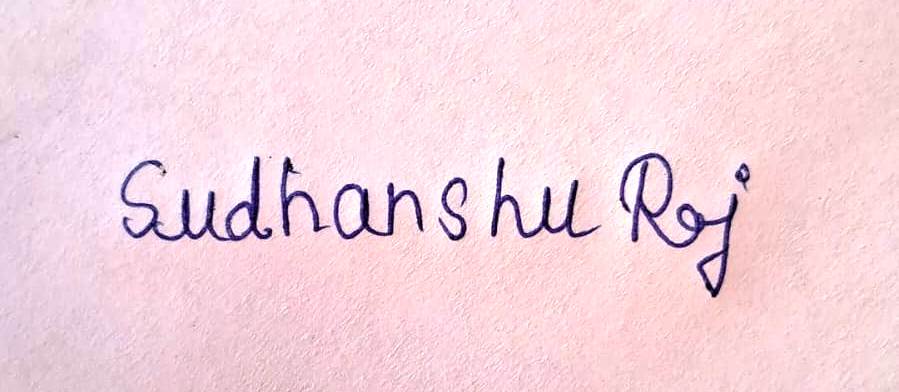 Sudhanshu Raj